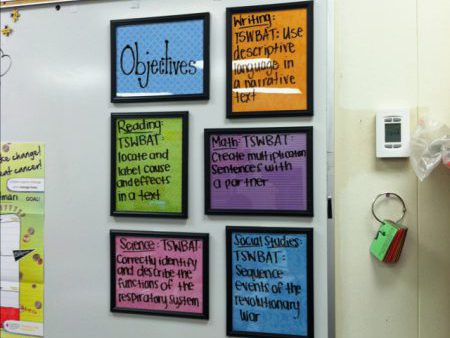 Objectives
Writing:
TSWBAT: Use
descriptive
language in
a narrative
text
Reading:
TSWBAT:
locate and
label cause
and effects
in a text
Math: TSWBAT:
Create multiplication
Sentences with
a partner
Science: TSWBAT:
Correctly identify
and describe the
functions of the
respiratory system
Social Studies:
TSWBAT:
Sequence
events of the
revolutionary
war
change!
cancer!
GOAL: